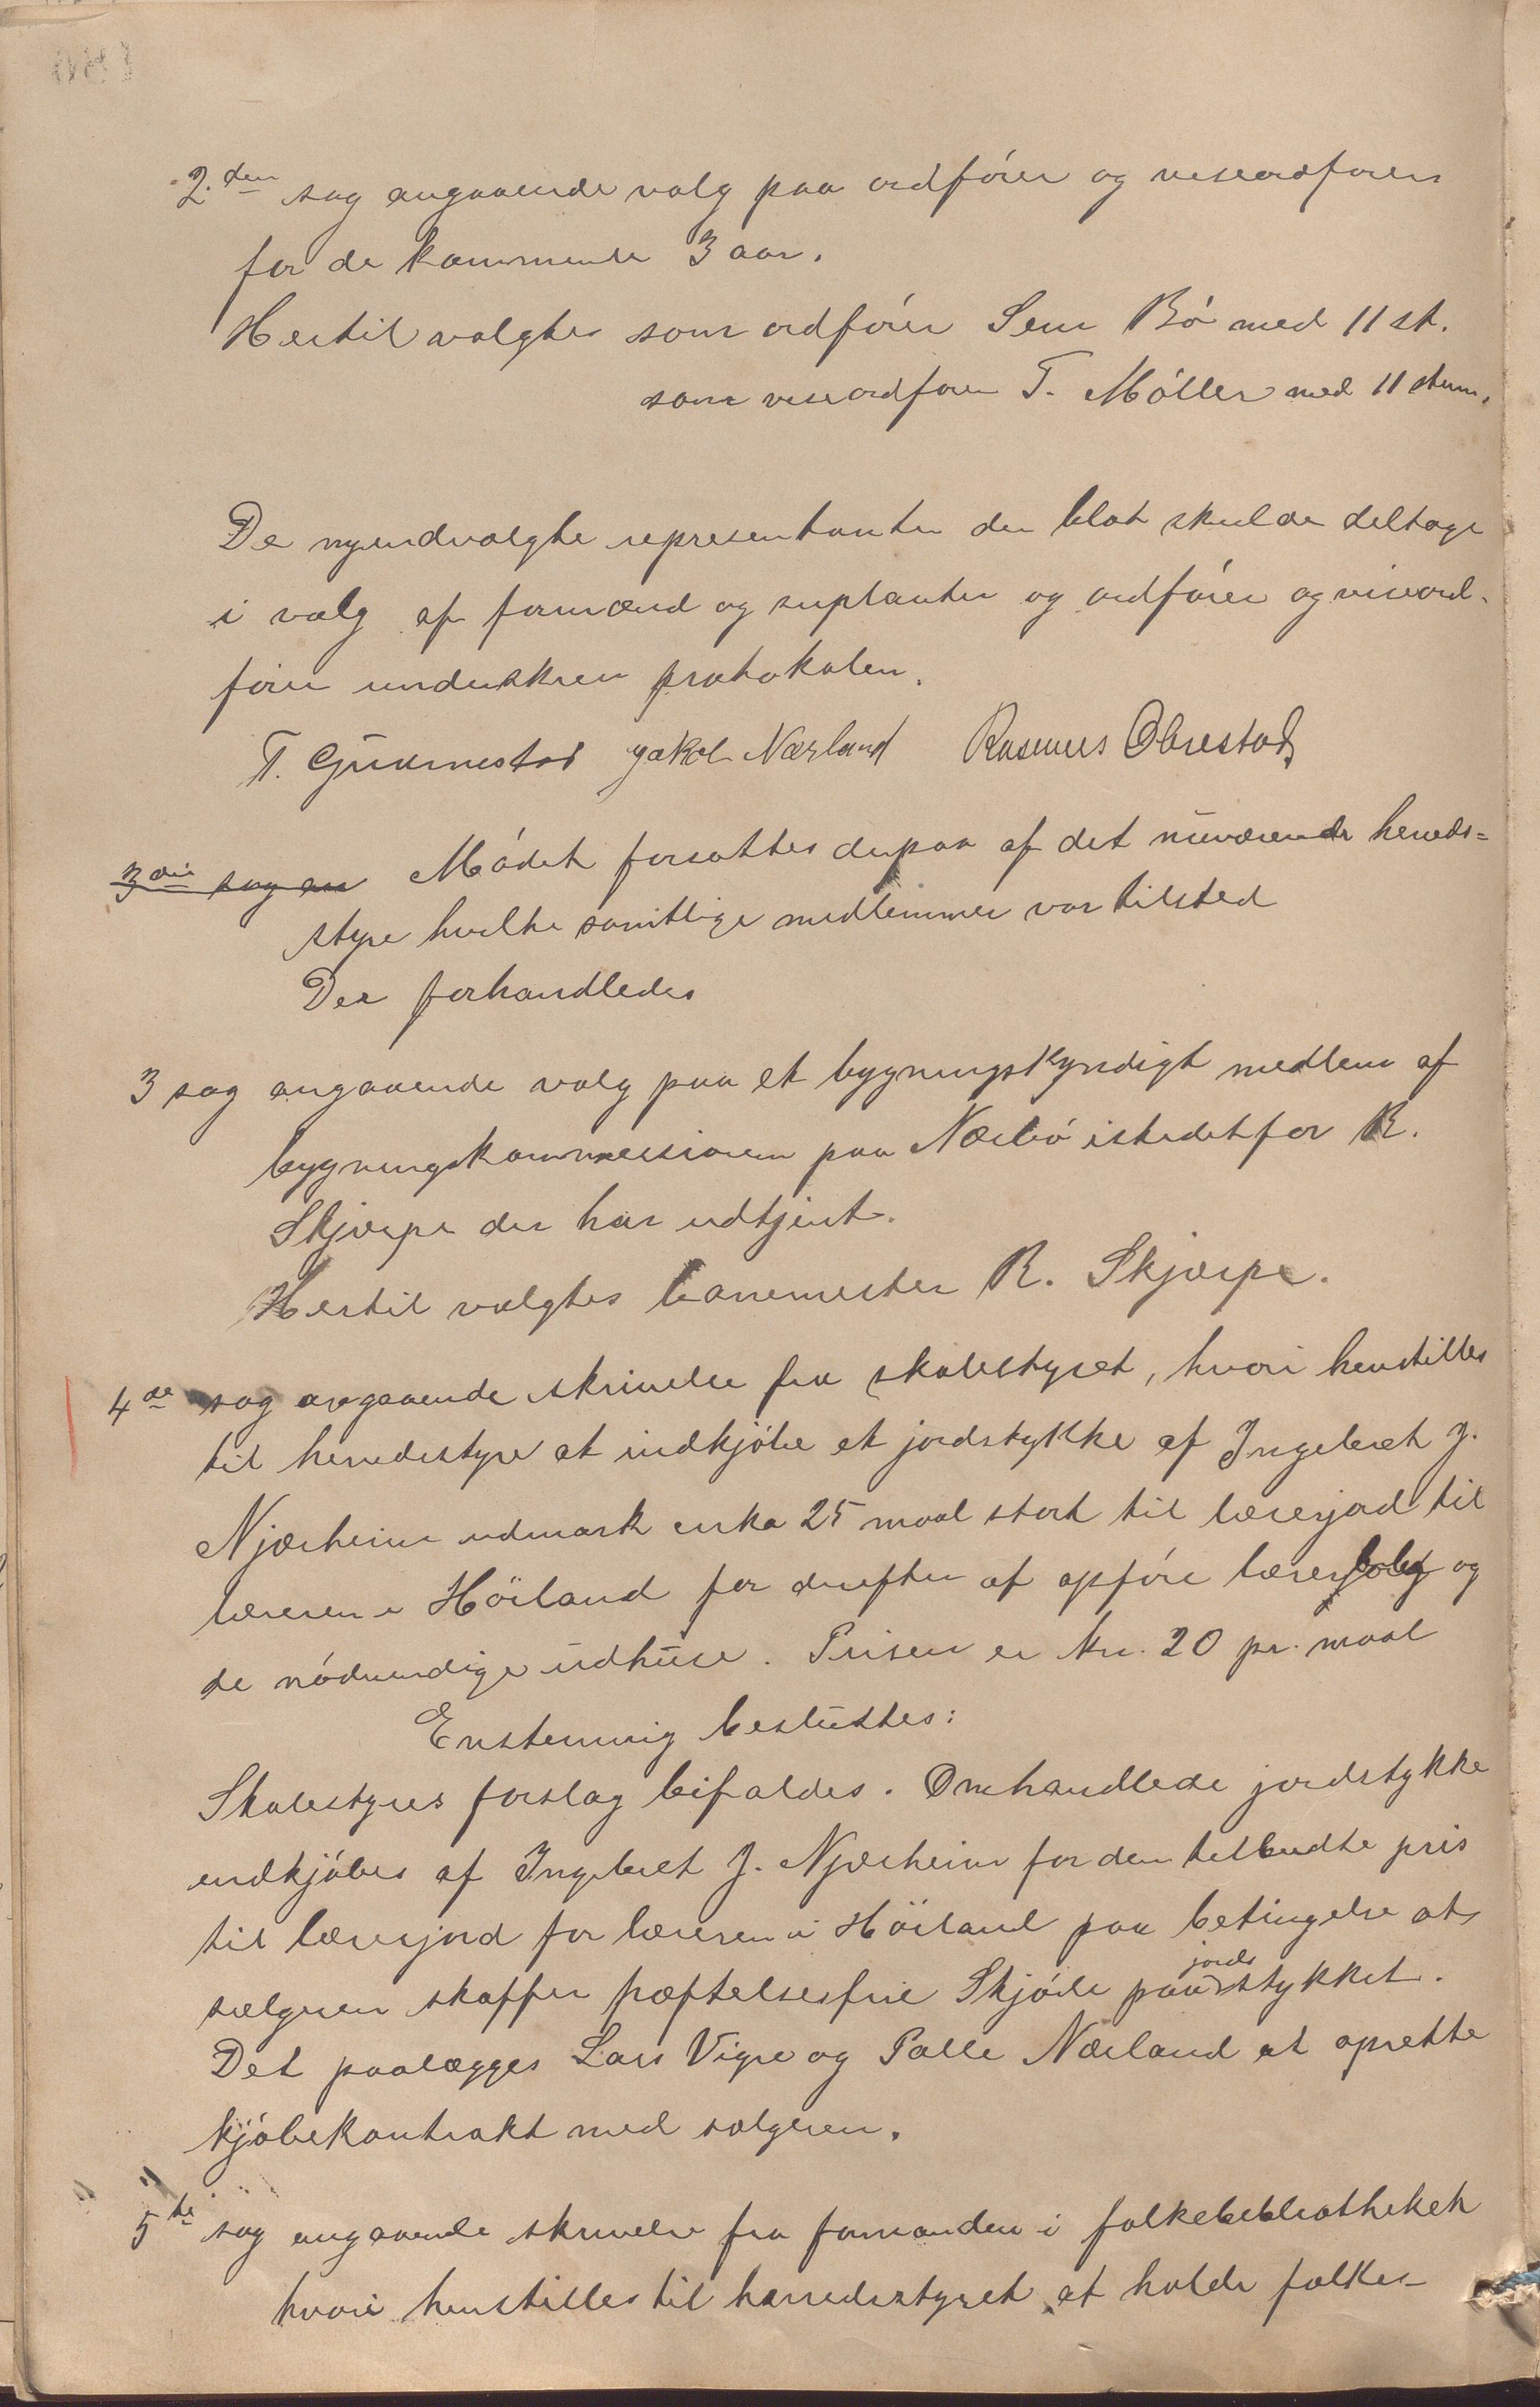 2.den sag angaaende valg paa ordfører og viseordfører
for de kommende 3 aar.
Hertil valgtes som ordfører Sem Bø med 11 st.
som viseordfører T. Møller med 11 stem.
De nyendvalgte representanter der blot skulde deltage
i valg af formænd og suplanter og ordfører og viseord-
fører underskrev protokolen.
T. Gudmestad Jakob Nærland Rasmus Obrestad,
3die sag an Mødet forsattes derpaa af det nuværende hereds=
styre hvilke samtlige medlemmer var tilsted
Der forhandledes
3 sag angaaende valg paa et bygningskyndigt medlem af
bygningskommessionen paa Nærbø istedetfor R.
Skjærpe der har udtjent.
Hertil valgtes banemester R. Skjærpe.
4de sag angaaende skrivelse fra skolestyret, hvori henstilles
til heredsstyre at indkjøbe et jordstykke af Ingebret J.
Njærheim udmark cirka 25 maal stort til lærerjord til
læreren i Höiland for derefter at opføre lærerbolig og
de nødvendige udhuse. Prisen er kr. 20 pr. maal
Enstemmig besluttes:
Skolestyres forslag bifaldes. Omhandlede jordstykke
indkjøbes af Ingebret J. Njærheim for den tilbudte pris
til lærerjord for læreren i Höiland paa betingelse at
sælgeren skaffer hæftelsesfrie Skjøde paa jordstykket.
Det paalægges Lars Vigre og Palle Nærland at oprette
kjøbekontrakt med sælgeren.
5te sag angaaende skrivelse fra formanden i folkebibliotheket
hvori henstilles til herredsstyret at holde folke-